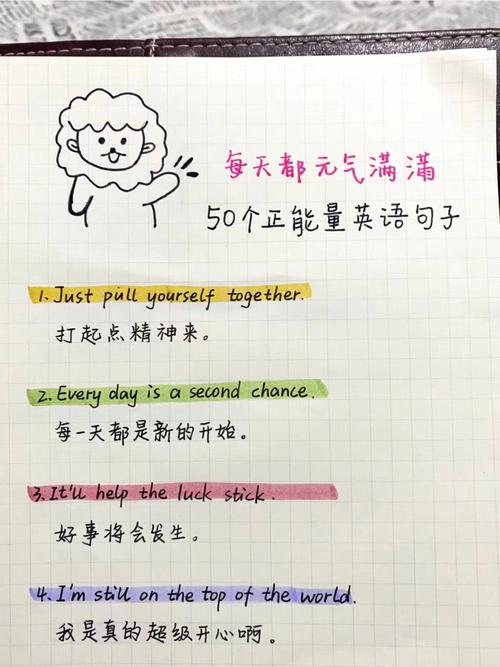 每天都元气满满
50个正能量英语句子
1. Just pull yourself together.
打起点精神来。
2. Every day is a second chance.
每一天都是新的开始。
3. It'll help the luck stick.
好事将会发生。
4. I'm still on the top of the world.
我是真的超级开心啊。